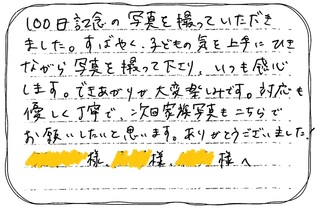 100日記念の写真を撮っていただき
ました。すばやく、子どもの気を上手にひき
ながら写真を撮って下さり、いつも感心
します。できあがりが大変楽しみです。対応も
優しく丁寧で、次回家族写真もこちらで
お願いしたいと思います。ありがとうございました！
様、様、様へ